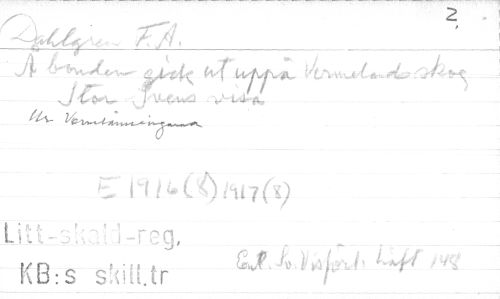 2.
Dahlgren F.A.
Å bonden gick ut uppå Vermelands skog
Stor Svens visa
Ur Vermlänningarna
E 1916(8) 1917(8)
Litt-skald-reg.
KB:s skill.tr
Enl. Sv. Visförl. häft 148